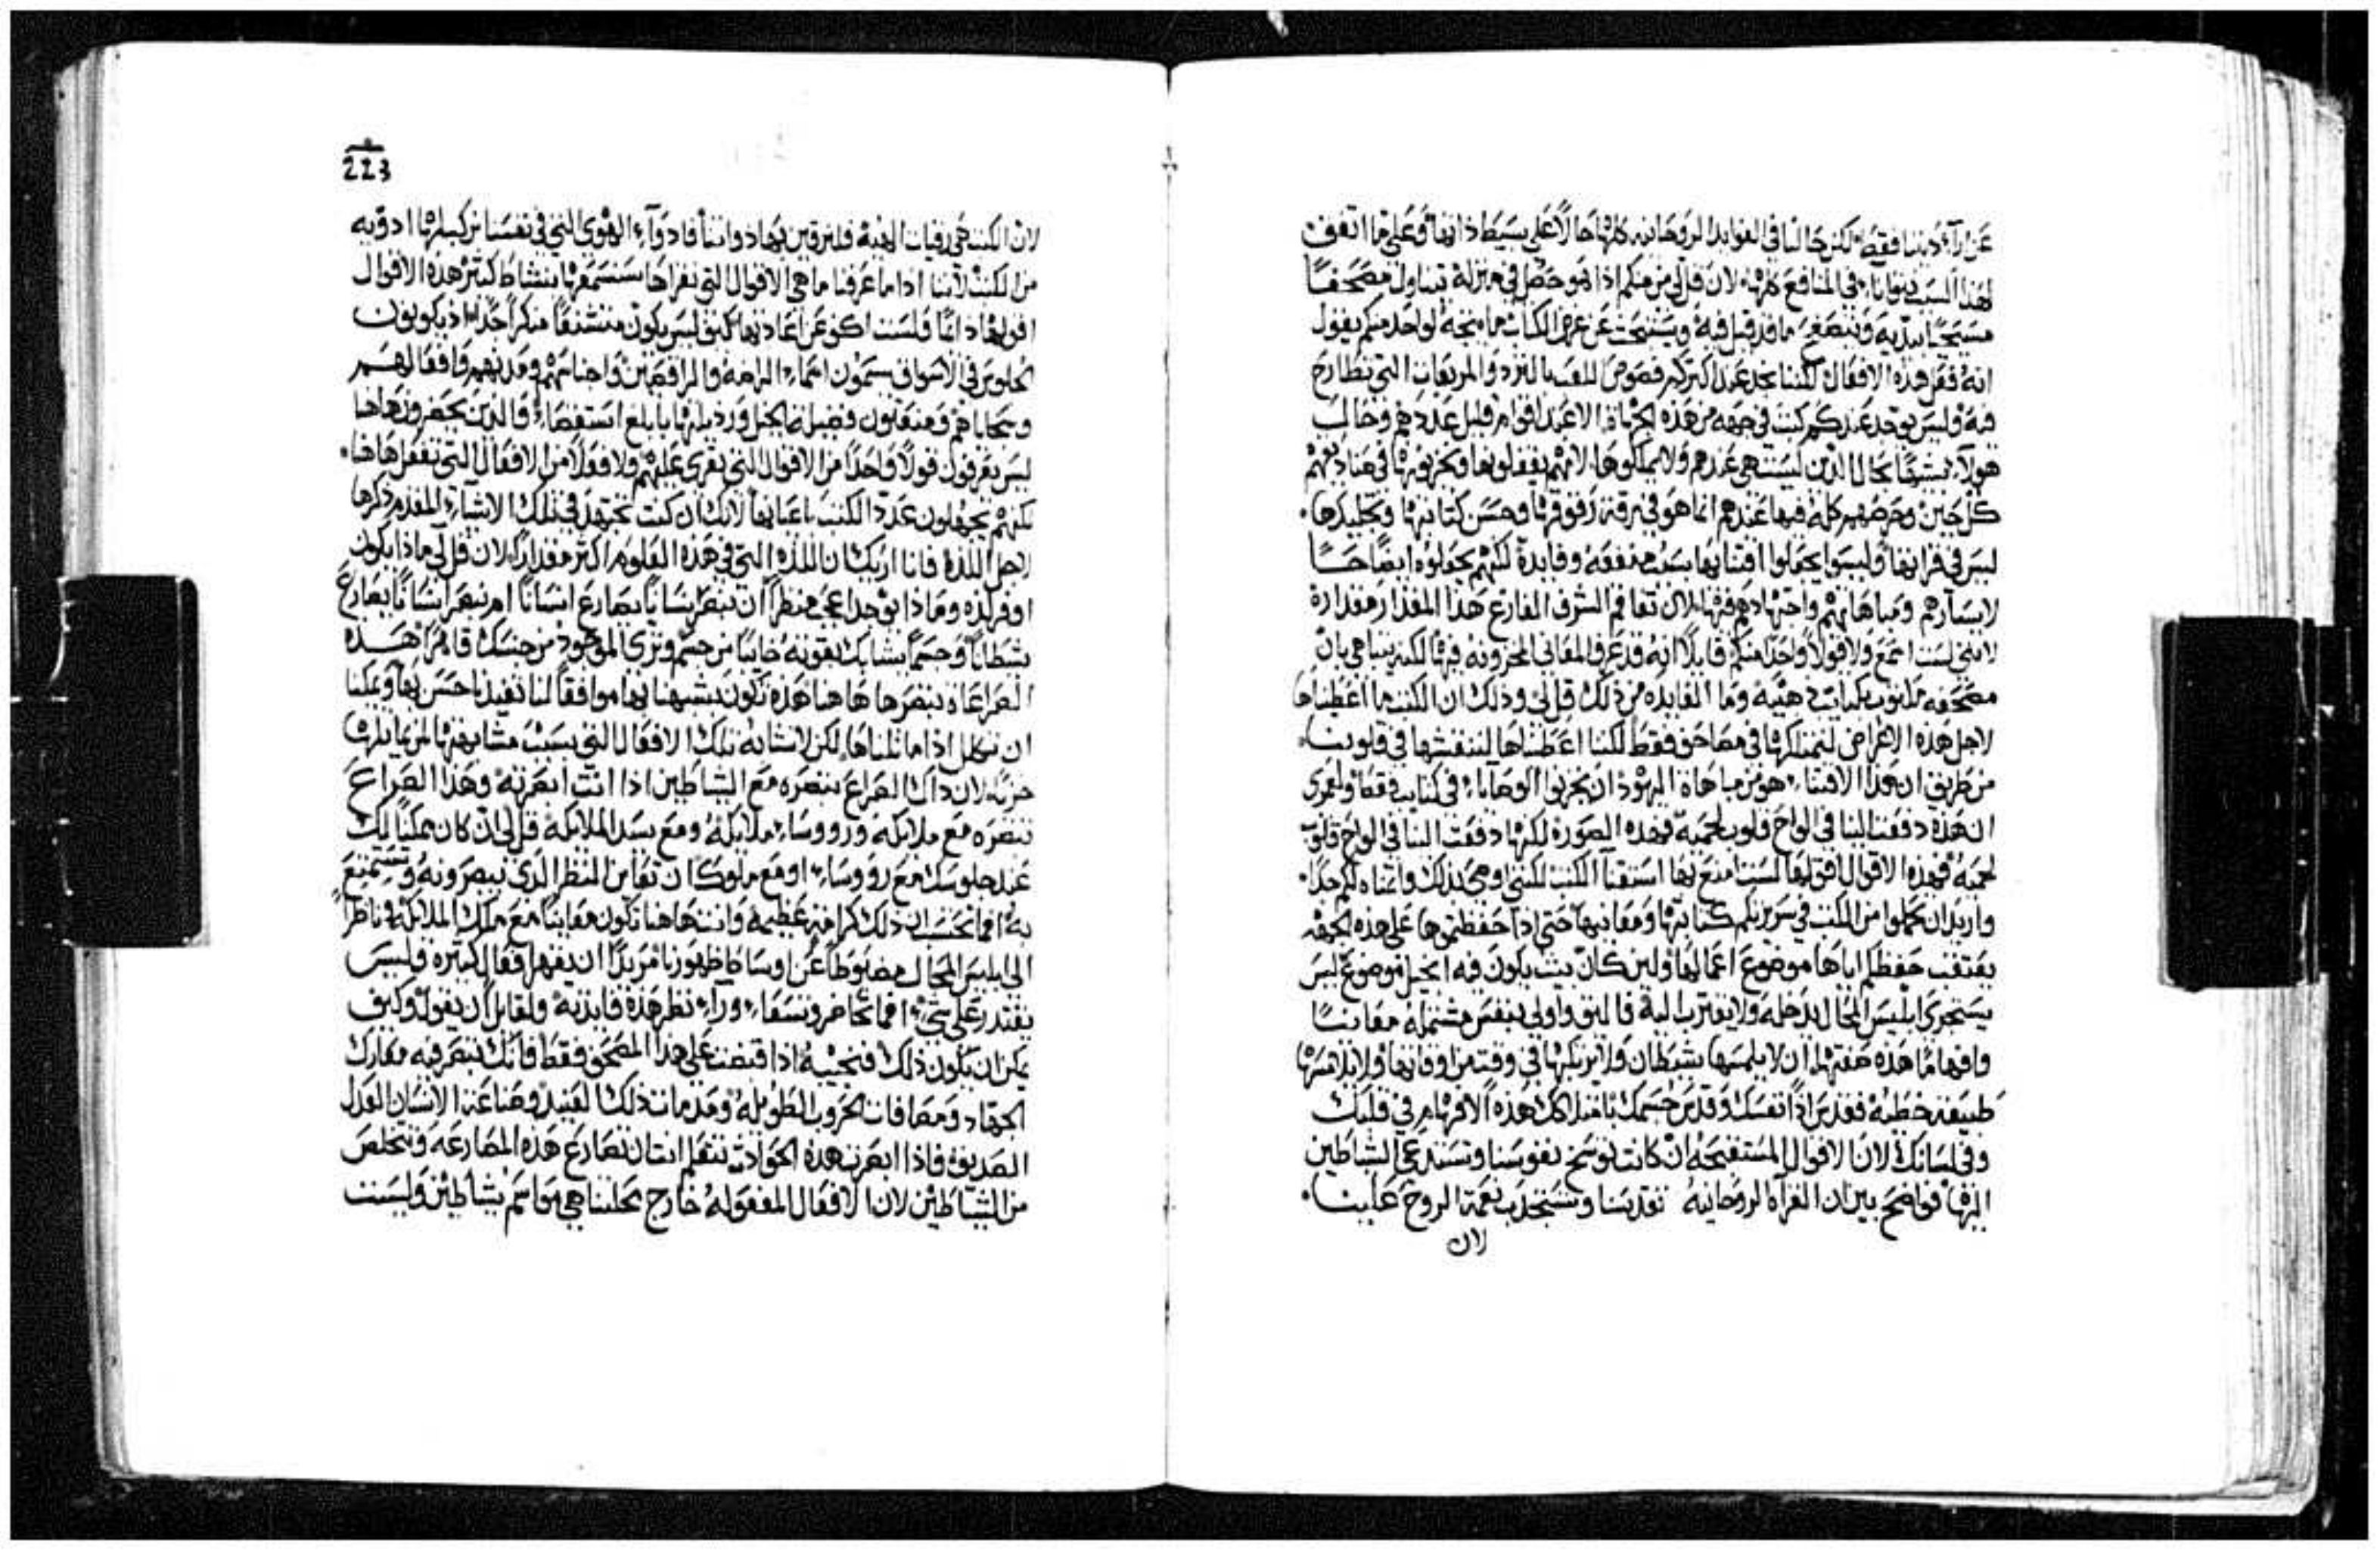 عن ارآء ديننا فقط لكن حالنا في الفوايد الروحانيه كلها حالاً على بسيط ذاتها وعلى ما اتفق
لهذا السبب تواناء في المنافع كلها لان قل لي من منكم اذا هو حصل في منزله تناول مصحفاً
مسيحياً بيديه وتصفح ما قد قيل فيه ويستبحث عن غرض الكتاب ما يتجه لواحد منكم يقول
انه فعل هذه الافعال لكننا نجد عند اكثركم فصوص اللعب بالنرد والمربعات التي تطارح
فيه وليس يوجد عندكم كتب في جهه من هذه الجهات الا عند اقوام قليل عددهم وحال
هولآء تشبهاً بحال الذين ليست هي عندهم ولا يملكوها لانهم يقفلونها ويخزنونها في صناديقهم
كل حين وحرصهم كله فيها عندهم انما هو في رقة رقوقها وحسن كتابتها وتجليدها
ليس في قراتها وليسوا يجعلوا اقتنايها بسبب منفعه وفايدة لكنهم يجعلوه ايضاحاً
لايسارهم ومباهاتهم واجتهادهم فيها لان تفاقم الشرف الفارغ هذا المقدار مقداره
لانني لست اسمع ولا قولاً واحداً منكم قايلاً انه قد عرف المعاني المخزونه فيها لكنه يتباهي بان
مصحفه مكتوب بكتابت ذهبيه وما الفايده من ذلك قل لي وذلك ان الكتب ما اعطيناها
لاجل هذه الاغراض لنمتلكها في مصاحف فقط لكننا اعطيناها لننقشها في قلوبنا
من طريق ان هذا الاقتناء هو من مباهاة اليهود ان يخزنوا الوصايا في كتايب فقط ولعمري
ان هذه دفعت الينا في الواح قلوب لحميه فهذه الصوره لكنها دفعت الينا في الواح قلوب
لحميه فهذه الاقوال اقولها لست امنع بها استقنآ الكتب لكنني اوصي بذلك واتمناه لكم جداً
واريد ان تحملوا من الكتب في سريرتكم كتابتها ومعانيها حتي اذا حفظتموها على هذه الجهه
يعتقب حفظكم اياها موضوع اعمالها ولين كان بيت يكون فيه انجيل موضوع ليس
يستجري ابليس المحال يدخله ولا يقترب اليه فاليق واولى بنفس مشتمله معانياً
وافهاماً هذه صفتها ان لا يلمسها شيطان ولا يركبها في وقت من اوقاتها ولا يلامسها
طبيعه خطيه فقدس اذاً نفسك وقدس جسمك بامتلاكك هذه الافهام في قلبك
وفي لسانك لان الاقوال المستقبحه ان كانت توسخ نفوسنا وتستدعي الشياطين
اليها فواضح بين ان القرآه الروحانيه تقدسنا وتستجذب نعمة الروح علينا
لان
223
لان الكتب هي رقيات الهيه فلنرقين بها ذواتنا فادوآء الهوي التي في نفسنا نركب لها ادويه
من الكتب لاننا اذا ما عرفنا ما هي الاقوال التي نقراها سنسمعها بنشاط كثير هذه الاقوال
اقولها دايماً ولست اكف عن اعادتها كيف ليس يكون مستشنعاً منكراً جداً اذ يكونون
الجلوس في الاسواق يسمون اسماء الزمره والراقصين واجناسهم ومدنهم وافعالهم
وسجاياهم ويعتقدون فضيلة الخيل ورذيلتها بابلغ استقصاء والذين يحضرون هاهنا
ليس يعرفون قولاً واحداً من الاقوال التي تقرى عليهم ولا فعلاً من الافعال التي تفعل هاهنا
لكنهم يجهلون عدد الكتب باعيانها لانك ان كنت تجتهد في تلك الاشيآء المقدم ذكرها
لاجل اللذه فانا اريك ان اللذه التي في هذه العلوم اكثر مقداراً لان قل لي ماذا يكون
اوفر لذه وماذا يوجد اعجب منظراً ان تبصر انساناً يصارع انساناً ام تبصر انساناً يصارع
شيطاناً وجسماً يشابك بقوته خايباً من جسم وتري الموجود من جنسك قاهراً هذه
الصراعات نبصرها هاهنا هذه تكون تشبهنا بها موافقاً لنا تفيدنا حسن بها ويمكنا
ان نكلل اذا ماثلناها لكن لا نشابه تلك الافعال التي يسبب مشابهتها لمن يماثلها
خزياً لان ذاك الصراع تبصره مع الشياطين اذا انت ابصرته وهذا الصراع
تبصره مع ملايكه ورووساء ملايكه ومع سيد الملايكه قل لي ان كان ممكناً لك
عند جلوسك مع رووساء او مع ملوك ان تعاين المنظر الذي تبصرونه وتستمتع
به افما تحتسب ان ذلك كرامة عظيمه وانت هاهنا تكون معايناً مع ملك الملايكه وناظراً
الى ابليس المحال مضبوطاً عن اوساط ظهورنا مريداً ان يقهر افعال كثيره وليس
يقتدر علي شي افما تحاضر وتسعاء ورآء نظر هذه فايدته ولقايل ان يقول وكيف
يمكن ان يكون ذلك فنجيبه اذا قبضت على هذا المصحف فقط فانك تبصر فيه معارك
الجهاد ومصافات الحروب الطويله ومقدمات ذلك العنيد وصناعة الانسان العدل
الصديق فاذا ابصرت هذه الحوادث تتعلم انت ان تصارع هذه المصارعه وتتخلص
من الشياطين لان الافعال المفعوله خارج محلنا هي مواسم شياطين وليست